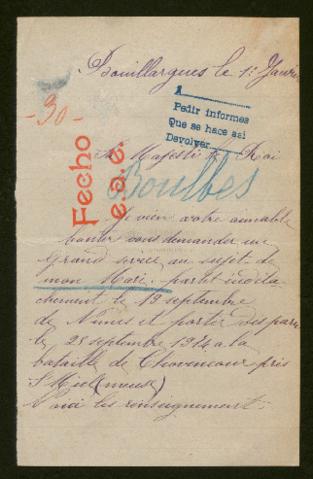 Bouillargues le 1r Janvier
-30-
1
Pedir informes
Que se hace asi
Devolver
Fecho
e.s.e.
A Sa Majesté le Roi
Boulbes
Je vien votre aimable
bonter vous demander un
grand service au sujet de
mon Mari. partit in détachement le 19 septembre
de Nimes et porter disparu
le 25 septembre 1914 a la
bataille de Chauvoncour près
St Miel (meuse)
Voici les renseignement: